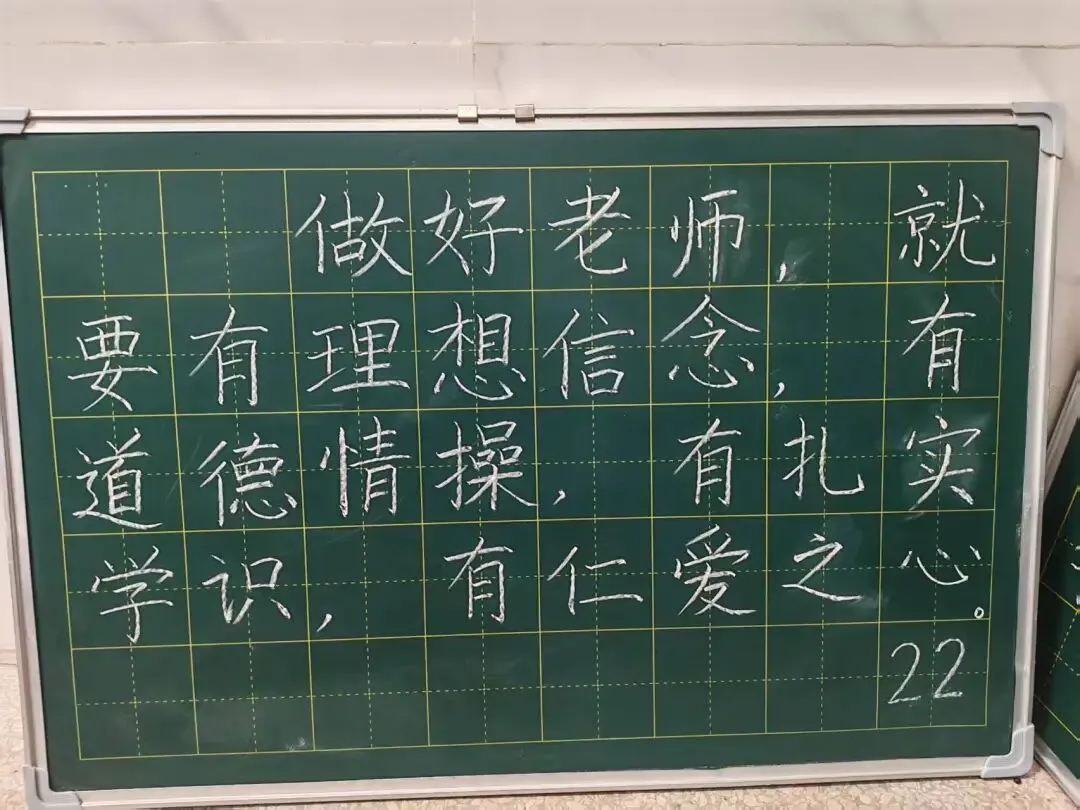 做好老师，就
要有理想信念，有
道德情操，有扎实
学识，有仁爱之心。
22